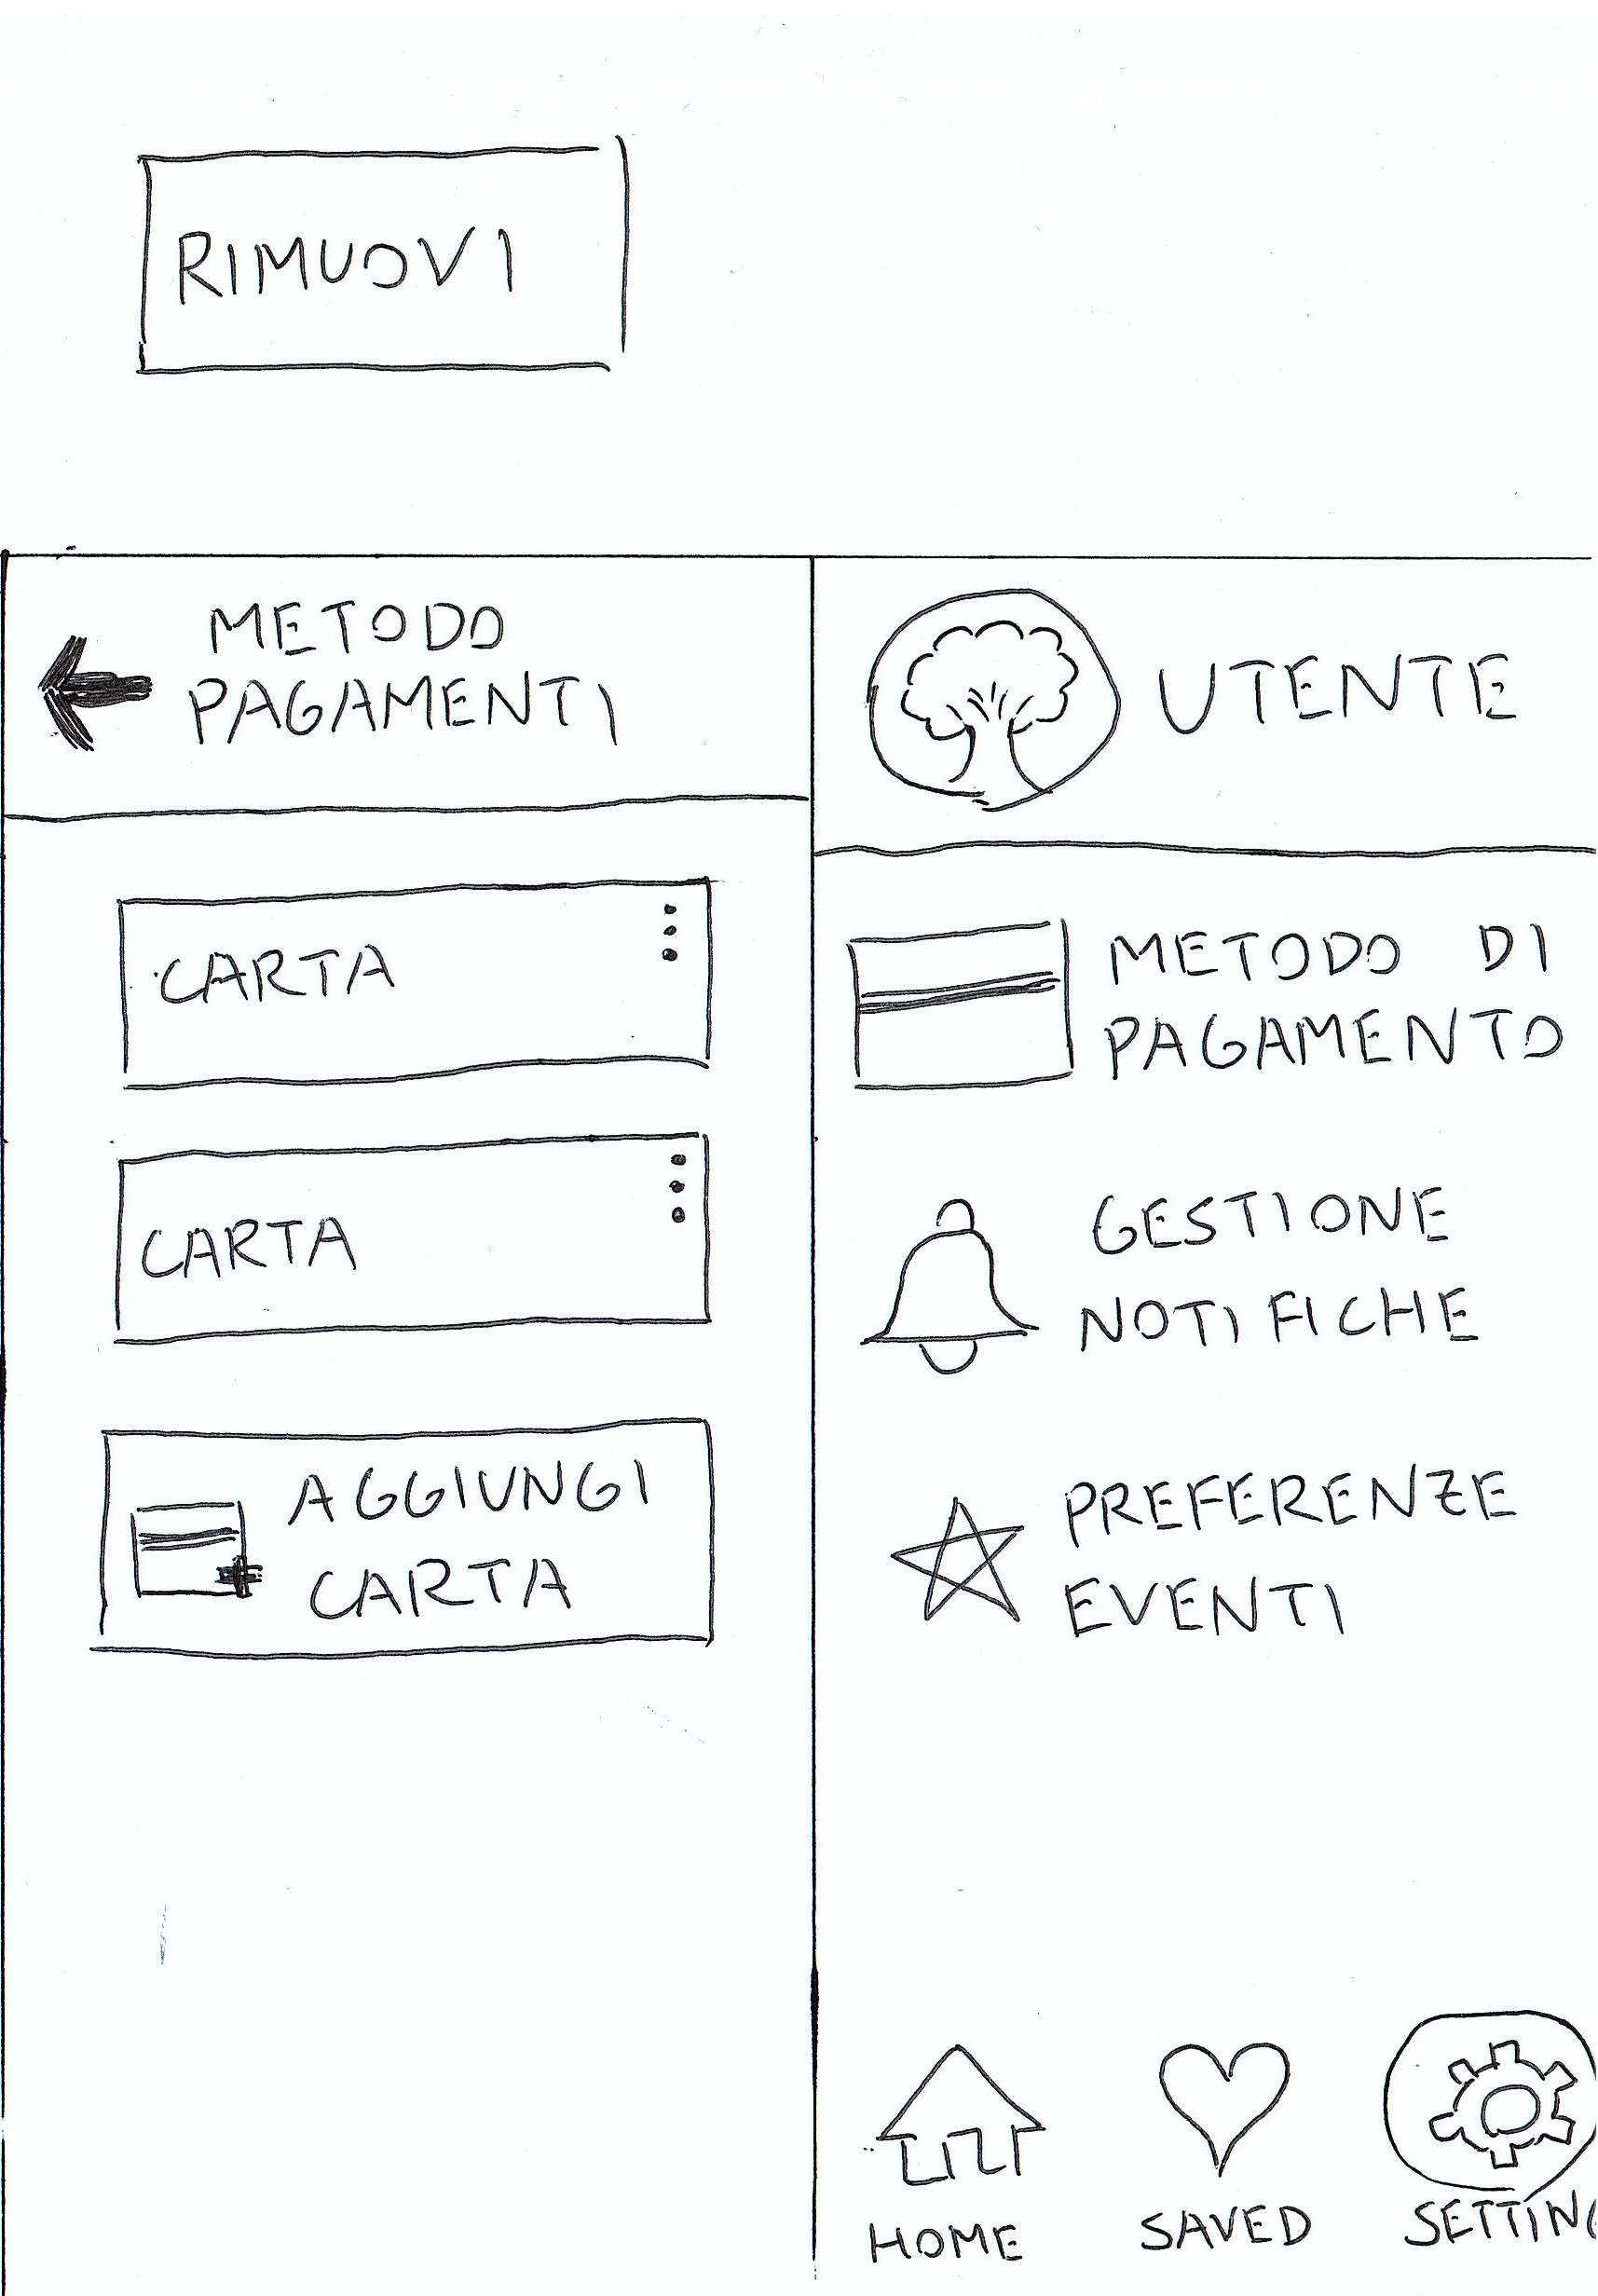 RIMUOVI
METODO
PAGAMENTI
CARTA
CARTA
AGGIUNGI
CARTA
UTENTE
METODO DI
PAGAMENTO
GESTIONE
NOTIFICHE
PREFERENZE
EVENTI
HOME SAVED SETTING